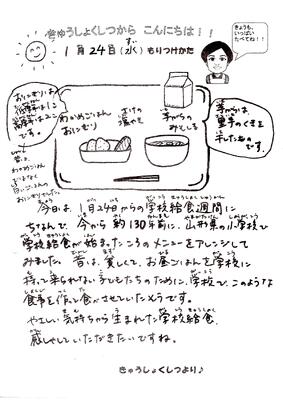 きゅうしょくしつから こんにちは!!
1月24日(水) もりつけかた
きょうも、
いっぱい
たべてね!!
おにぎりは
です。
わかめごはん
おにぎり
さけの
塩やき
芋がらの
みそしる
芋がらは、
里芋のくきを
干したもの
です。
今日は、1月24日からの学校給食週間に
ちなんで、今から約130年前に、山形県の小学校で
学校給食が始まったころのメニューをアレンジして
みました。昔は、貧しくて、お昼ごはんを学校に
持って来られない子どもたちのために、学校で、このような
食事を作って食べさせていたそうです。
やさしい気持ちから生まれた学校給食。
感しゃしていただきたいですね。
きゅうしょくしつより♪